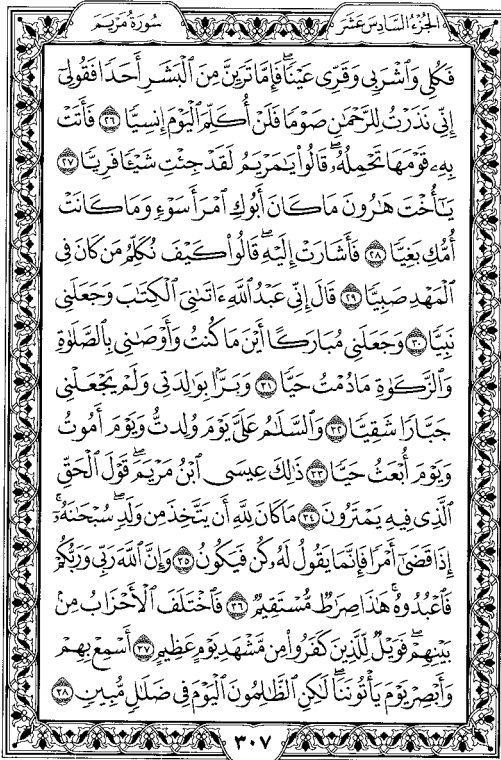 الجزء السادس عشر
سورة مريم
فَكُلِي وَٱشْرَبِي وَقَرِّي عَيْنًاۖ فَإِمَّا تَرَيِنَّ مِنَ ٱلْبَشَرِ أَحَدًا فَقُولِيٓ
إِنِّي نَذَرْتُ لِلرَّحْمَٰنِ صَوْمًا فَلَنْ أُكَلِّمَ ٱلْيَوْمَ إِنسِيًّا ٢٦ فَأَتَتْ
بِهِۦ قَوْمَهَا تَحْمِلُهُۥۖ قَالُوا۟ يَٰمَرْيَمُ لَقَدْ جِئْتِ شَيْـًٔا فَرِيًّا ٢٧
يَٰٓأُخْتَ هَٰرُونَ مَا كَانَ أَبُوكِ ٱمْرَأَ سَوْءٍ وَمَا كَانَتْ
أُمُّكِ بَغِيًّا ٢٨ فَأَشَارَتْ إِلَيْهِۖ قَالُوا۟ كَيْفَ نُكَلِّمُ مَن كَانَ فِي
ٱلْمَهْدِ صَبِيًّا ٢٩ قَالَ إِنِّي عَبْدُ ٱللَّهِ ءَاتَىٰنِيَ ٱلْكِتَٰبَ وَجَعَلَنِي
نَبِيًّا ٣٠ وَجَعَلَنِي مُبَارَكًا أَيْنَ مَا كُنتُ وَأَوْصَٰنِي بِٱلصَّلَوٰةِ
وَٱلزَّكَوٰةِ مَا دُمْتُ حَيًّا ٣١ وَبَرًّۢا بِوَٰلِدَتِي وَلَمْ يَجْعَلْنِي
جَبَّارًا شَقِيًّا ٣٢ وَٱلسَّلَٰمُ عَلَيَّ يَوْمَ وُلِدتُّ وَيَوْمَ أَمُوتُ
وَيَوْمَ أُبْعَثُ حَيًّا ٣٣ ذَٰلِكَ عِيسَى ٱبْنُ مَرْيَمَۖ قَوْلَ ٱلْحَقِّ
ٱلَّذِي فِيهِ يَمْتَرُونَ ٣٤ مَا كَانَ لِلَّهِ أَن يَتَّخِذَ مِن وَلَدٍۖ سُبْحَٰنَهُۥٓۚ
إِذَا قَضَىٰٓ أَمْرًا فَإِنَّمَا يَقُولُ لَهُۥ كُن فَيَكُونُ ٣٥ وَإِنَّ ٱللَّهَ رَبِّي وَرَبُّكُمْ
فَٱعْبُدُوهُۚ هَٰذَا صِرَٰطٌ مُّسْتَقِيمٌ ٣٦ فَٱخْتَلَفَ ٱلْأَحْزَابُ مِنۢ
بَيْنِهِمْۖ فَوَيْلٌ لِّلَّذِينَ كَفَرُوا۟ مِن مَّشْهَدِ يَوْمٍ عَظِيمٍ ٣٧ أَسْمِعْ بِهِمْ
وَأَبْصِرْ يَوْمَ يَأْتُونَنَاۖ لَٰكِنِ ٱلظَّٰلِمُونَ ٱلْيَوْمَ فِي ضَلَٰلٍ مُّبِينٍ ٣٨
٣٠٧